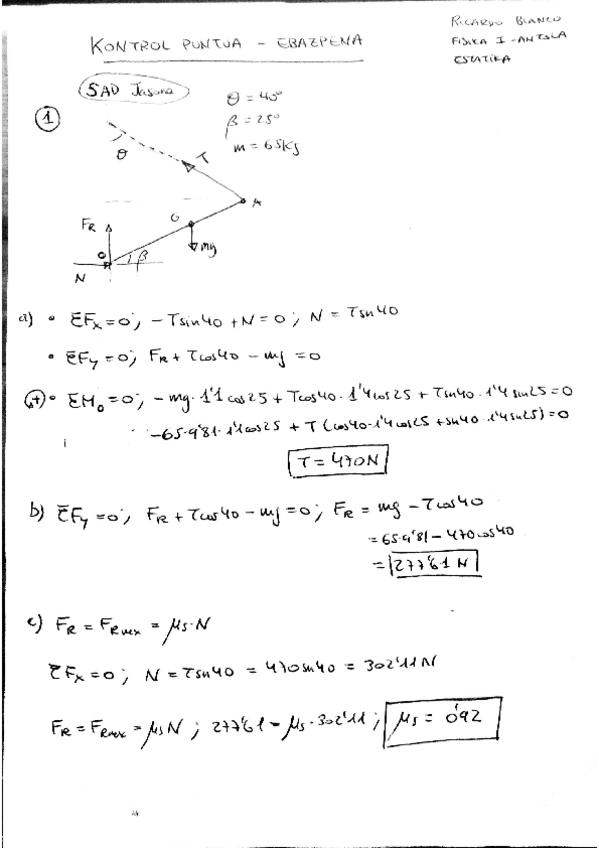 RICARDO BLANCO
KONTROL PUNTUA - EBAZPENA
FISIKA I - ANTZOLA
ESTATIKA
SAD Jasana
1
θ = 40º
β = 25º
m = 65Kg
θ
T
A
G
FR
mg
O
β
N
a) • ΣFx=0; -Tsin40 + N = 0; N = Tsin40
• ΣFy=0; FR + Tcos40 - mg = 0
+ • ΣMo=0; -mg·1'1cos25 + Tcos40·1'4cos25 + Tsin40·1'4sin25=0
-65·9'81·1'1cos25 + T(cos40·1'4cos25 + sin40·1'4sin25)=0
T = 470N
b) ΣFy=0; FR + Tcos40 - mg = 0; FR = mg - Tcos40
= 65·9'81 - 470cos40
= 277'61 N
c) FR = FRmax = μs·N
ΣFx=0; N = Tsin40 = 470sin40 = 302'11N
FR = FRmax = μsN; 277'61 = μs·302'11; μs = 0'92